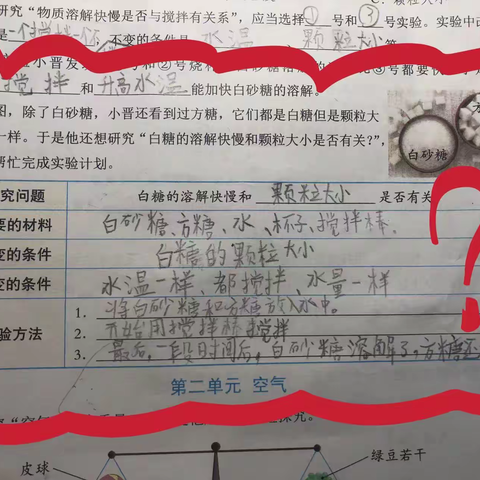 研究“物质溶解快慢是否与搅拌有关系”，应当选择①号和③号实验。实验中
是一个搅拌一个不，不变的条件是 水温 颗粒大小等
搅拌 和 升高水温 能加快白砂糖的溶解。
图，除了白砂糖，小晋还看到过方糖，它们都是白糖但是颗粒大
一样。于是他还想研究“白糖的溶解快慢和颗粒大小是否有关?”，
帮忙完成实验计划。
白砂糖
究问题 白糖的溶解快慢和 颗粒大小 是否有关
要的材料 白砂糖、方糖、水、杯子、搅拌棒.
变的条件 白糖的颗粒大小
变的条件 水温一样、都搅拌、水量一样
验方法
1. 将白砂糖和方糖放入水中。
2. 开始用搅拌棒搅拌
3. 最后，一段时间后，白砂糖溶解了，方糖还
第二单元 空气
皮球
绿豆若干